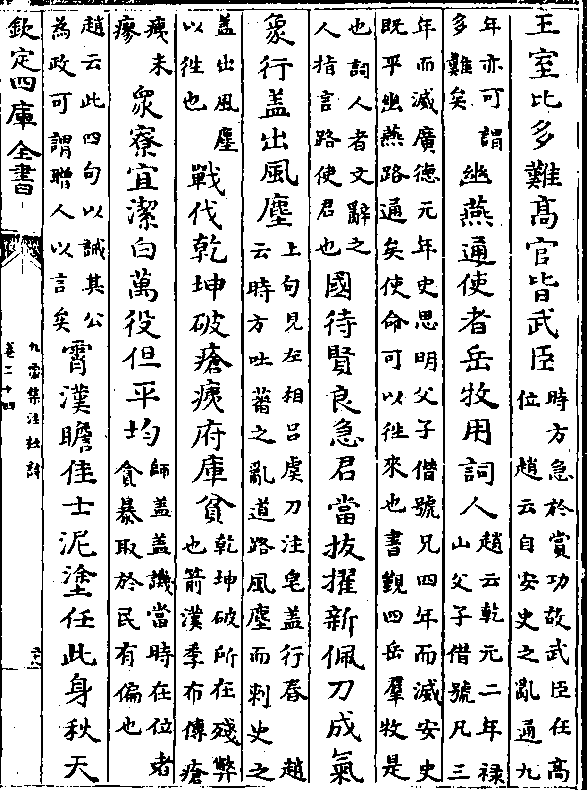 王室比多難髙官皆武臣時方急於賞功故武臣任髙位 趙云自安史之亂通九
年亦可謂多難矣幽燕通使者岳牧用詞人趙云乾元二年禄山父子借號凡三
年而滅廣德元年史思明父子借號兄四年而滅安史既平幽燕路通矣使命可以徃來也書覲四岳羣牧是
也詞人者文辭之人指言路使君也國待賢良急君當拔擢新佩刀成氣
象行盖出風塵上句見左相吕虔刀注皂盖行春 趙云時方吐蕃之亂道路風塵而刺史之
盖出風塵以徃也戰伐乾坤破瘡痍府庫貧乾坤破所在殘弊也前漢季布傳瘡
痍未瘳衆寮宜潔白萬役但平均師盖盖譏當時在位者貪暴取於民有偏也
趙云此四句以誡其公為政可謂贈人以言矣霄漢瞻佳士泥塗任此身秋天
欽定四庫全書
九家集注杜詩
卷二十四